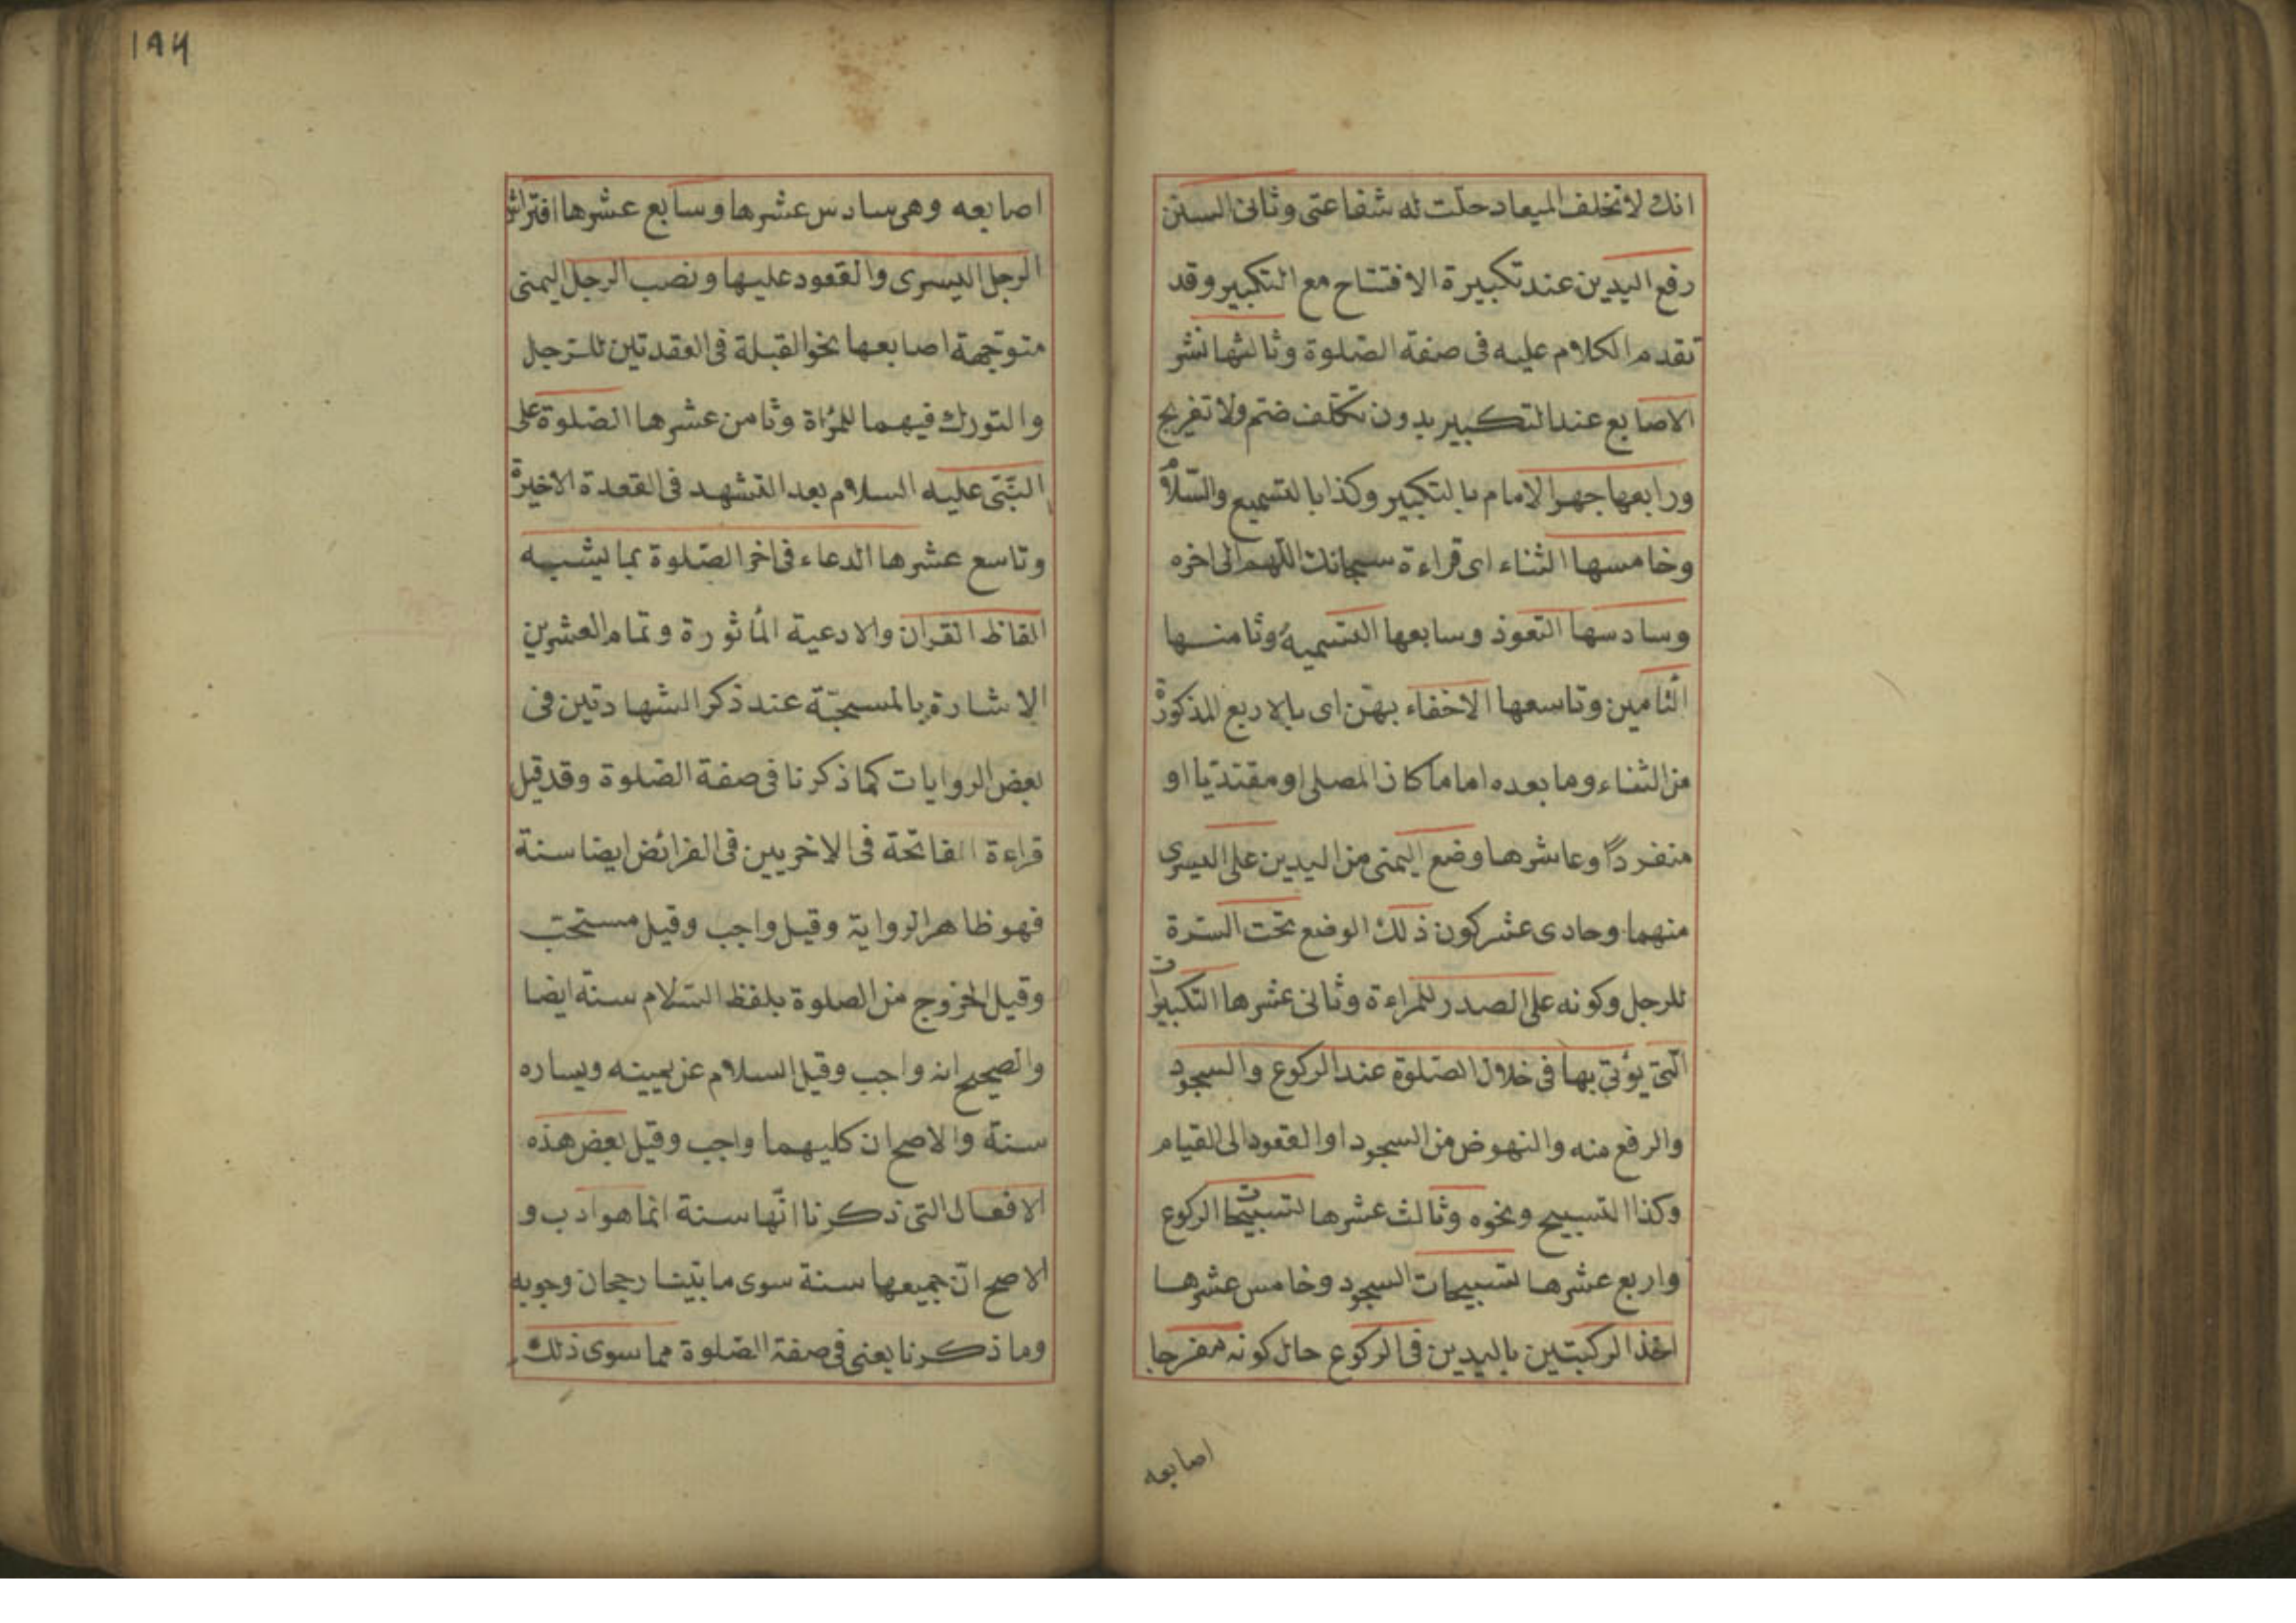 انك لا تخلف الميعاد حلت له شفاعتى وثانى السنن
رفع اليدين عند تكبيرة الافتتاح مع التكبير وقد
تقدم الكلام عليه فى صفة الصلوة وثالثها نشر
الاصابع عند التكبير بدون تكلف ضم ولا تفريج
ورابعها جهر الامام بالتكبير وكذا بالتسميع والسلام
وخامسها الثناء اى قراءة سبحانك اللهم الى اخره
وسادسها التعوذ وسابعها التسمية وثامنها
التامين وتاسعها الاخفاء بهن اى بالاربع المذكورة
من الثناء وما بعده اماما كان المصلى او مقتديا او
منفردا وعاشرها وضع اليمنى من اليدين على اليسرى
منهما وحادى عشر كون ذلك الوضع تحت السرة
للرجل وكونه على الصدر للمراءة وثانى عشرها التكبيرات
التى يؤتى بها فى خلال الصلوة عند الركوع والسجود
والرفع منه والنهوض من السجود او القعود الى القيام
وكذا التسبيح ونحوه وثالث عشرها تسبيحات الركوع
واربع عشرها تسبيحات السجود وخامس عشرها
اخذ الركبتين باليدين فى الركوع حال كونه مفرجا
اصابعه
١٩٤
اصابعه وهى سادس عشرها وسابع عشرها افتراش
الرجل اليسرى والقعود عليها ونصب الرجل اليمنى
متوجهة اصابعها نحو القبلة فى القعدتين للرجل
والتورك فيهما للمرأة وثامن عشرها الصلوة على
النبى عليه السلام بعد التشهد فى القعدة الاخيرة
وتاسع عشرها الدعاء فى اخر الصلوة بما يشبه
الفاظ القران والادعية المأثورة وتمام العشرين
الاشارة بالمسبحة عند ذكر الشهادتين فى
بعض الروايات كما ذكرنا فى صفة الصلوة وقد قيل
قراءة الفاتحة فى الاخريين فى الفرائض ايضا سنة
فهو ظاهر الرواية وقيل واجب وقيل مستحب
وقيل الخروج من الصلوة بلفظ السلام سنة ايضا
والصحيح انه واجب وقيل السلام عن يمينه ويساره
سنة والاصح ان كليهما واجب وقيل بعض هذه
الافعال التى ذكرنا انها سنة انما هو ادب و
الاصح ان جميعها سنة سوى ما بينا رجحان وجوبه
وما ذكرنا يعنى فى صفة الصلوة مما سوى ذلك